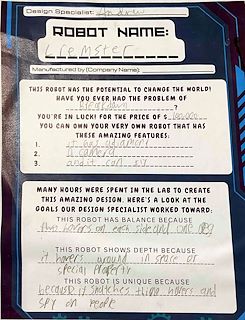 Design Specialist: Andrew
ROBOT NAME:
Manufactured by (Company Name):
THIS ROBOT HAS THE POTENTIAL TO CHANGE THE WORLD!
HAVE YOU EVER HAD THE PROBLEM OF
?
YOU'RE IN LUCK! FOR THE PRICE OF $
YOU CAN OWN YOUR VERY OWN ROBOT THAT HAS
THESE AMAZING FEATURES:
1. it has
2. a camera
3. and it can
MANY HOURS WERE SPENT IN THE LAB TO CREATE
THIS AMAZING DESIGN. HERE'S A LOOK AT THE
GOALS OUR DESIGN SPECIALIST WORKED TOWARD:
THIS ROBOT HAS BALANCE BECAUSE
hovers on each side and one
THIS ROBOT SHOWS DEPTH BECAUSE
it hovers around in space or
special property
THIS ROBOT IS UNIQUE BECAUSE
because it snatches hovers and
spy on people